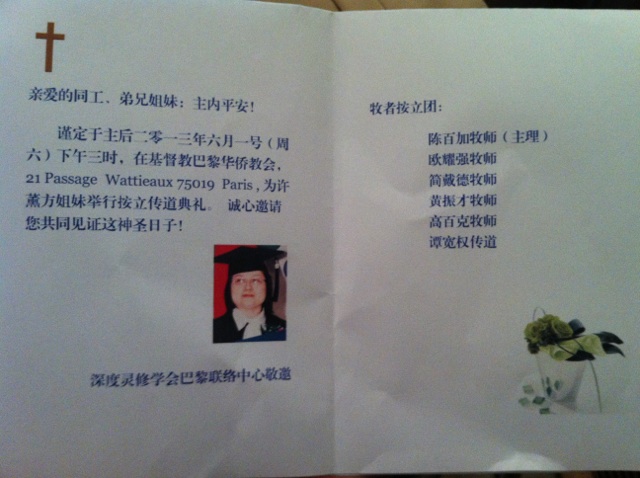 亲爱的同工、弟兄姐妹：主内平安！
谨定于主后二零一三年六月一号（周
六）下午三时，在基督教巴黎华侨教会，
21 Passage Wattieaux 75019 Paris , 为许
薰方姐妹举行按立传道典礼。 诚心邀请
您共同见证这神圣日子！
深度灵修学会巴黎联络中心敬邀
牧者按立团：
陈百加牧师（主理）
欧耀强牧师
简戴德牧师
黄振才牧师
高百克牧师
谭宽权传道